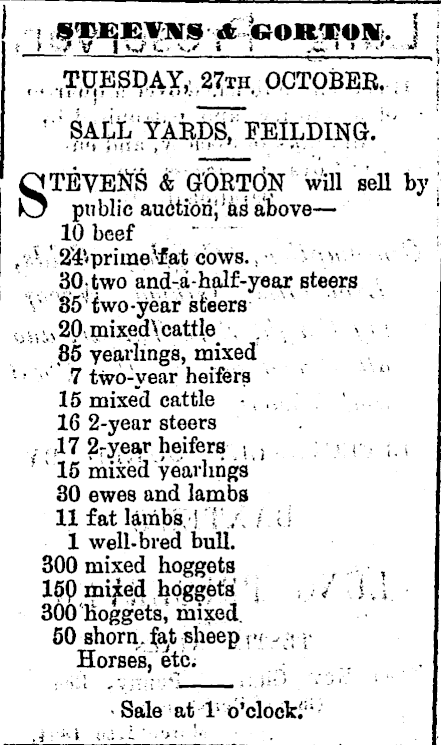 STEEVNS & GORTON.
TUESDAY, 27TH OCTOBER.
SALL YARDS, FEILDING.
STEVENS & GORTON will sell by
public auction, as above—
10 beef
24 prime fat cows.
30 two and-a-half-year steers
35 two-year steers
20 mixed cattle
35 yearlings, mixed
7 two-year heifers
15 mixed cattle
16 2-year steers
17 2-year heifers
15 mixed yearlings
30 ewes and lambs
11 fat lambs
1 well-bred bull.
300 mixed hoggets
150 mixed hoggets
300 hoggets, mixed
50 shorn fat sheep
Horses, etc.
Sale at 1 o'clock.